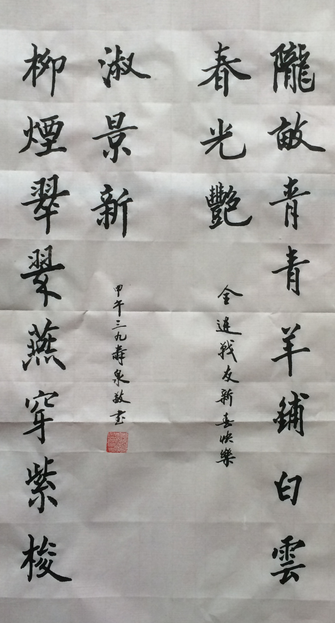 隴畝青青羊鋪白雲
春光艷
全連戰友新喜快樂
柳煙翠翠燕穿紫梭
淑景新
甲午三九壽泉敬書